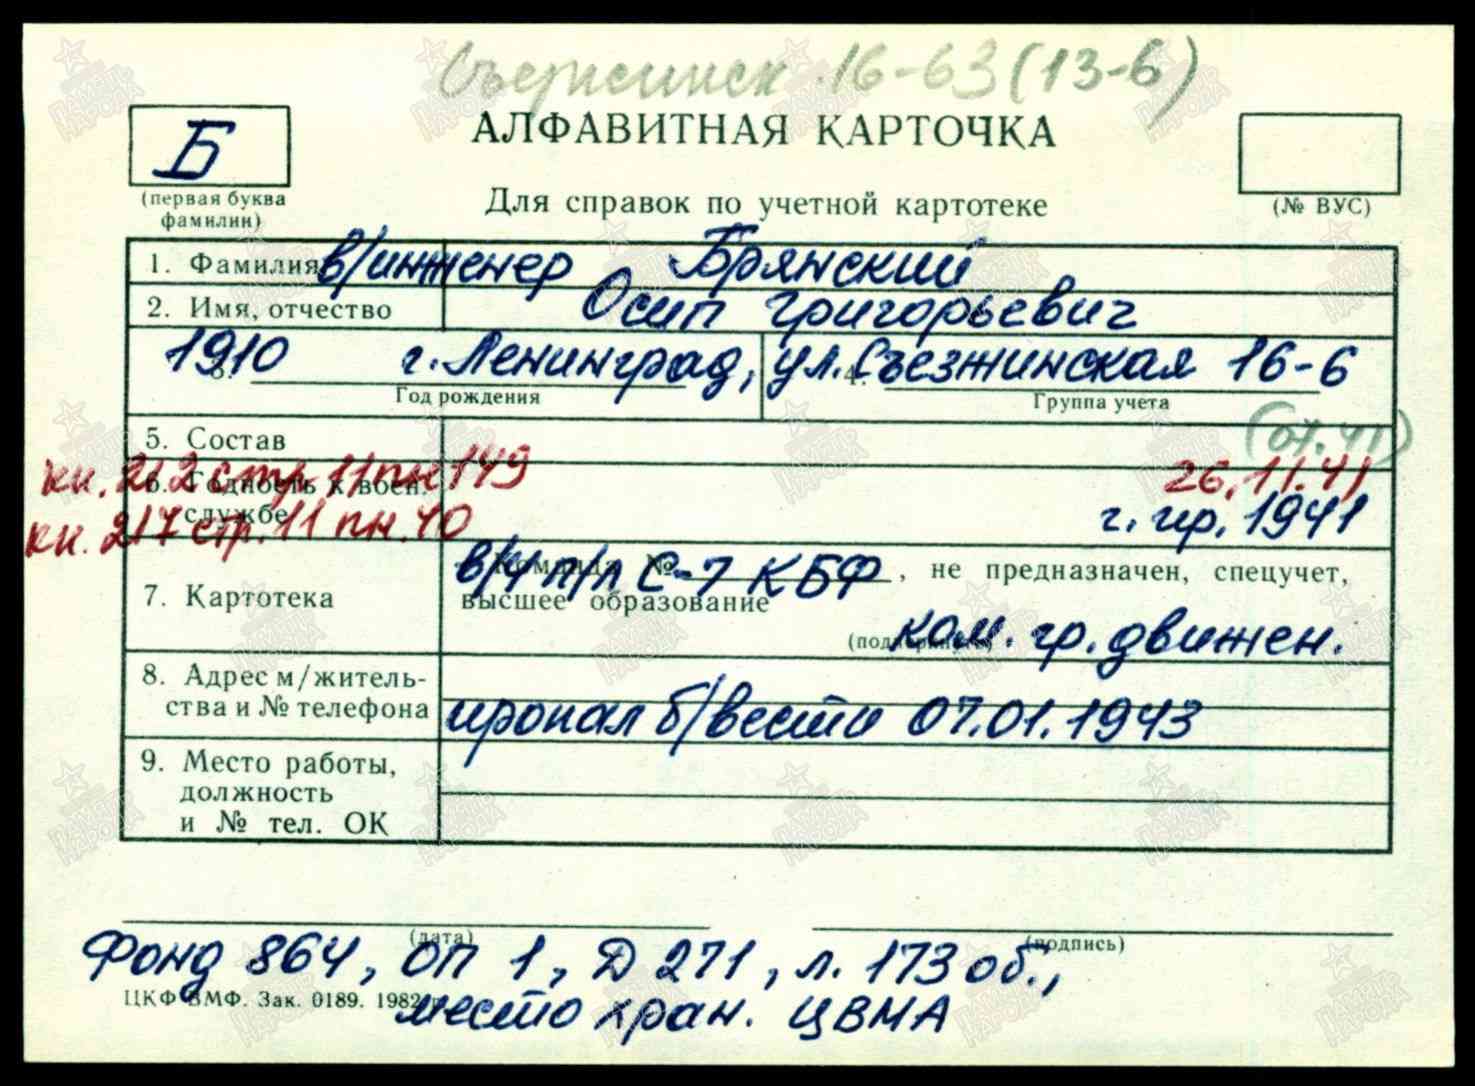 16-63 (13-6)
АЛФАВИТНАЯ КАРТОЧКА
Б
(первая буква
фамилии)
Для справок по учетной картотеке
(№ ВУС)
1. Фамилия в/инженер Брянский
2. Имя, отчество Осип Григорьевич
3. 1910 г. Ленинград, ул. Съезжинская 16-6
Год рождения
4.
Группа учета
5. Состав
(07.41)
6. Годность к воен.
службе
кн. 212 стр. 11 пн 149
26.11.41
кн. 217 стр. 11 пн. 40
г. пр. 1941
7. Картотека
Команда № , не предназначен, спецучет,
в/ч п/п С-7 КБФ
высшее образование
(подчеркнуть)
ком. гр. движен.
8. Адрес м/житель-
ства и № телефона
пропал б/вести 07.01.1943
9. Место работы,
должность
и № тел. ОК
(дата)
(подпись)
Фонд 864, ОП 1, Д 271, л. 173 об.,
ЦКФ ВМФ. Зак. 0189. 1982 г.
место хран. ЦВМА